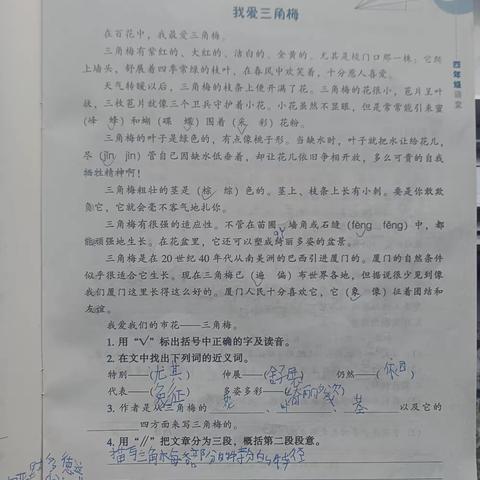 我爱三角梅
四年级语文
在百花中，我最爱三角梅。
三角梅有紫红的、大红的、洁白的、金黄的。尤其是校门口那一株：它爬
上墙头，舒展着四季常绿的枝叶，在春风中欢笑着，十分惹人喜爱。
天气转暖以后，三角梅的枝条上便开满了花。三角梅的花很小，苞片呈叶
状，三枝苞片就像三个卫兵守护着小花。小花虽然不显眼，但是常常能引来蜜
（峰 蜂）和蝴（碟 蝶）围着（采 彩）花粉。
三角梅的叶子是绿色的，有点像桃子形。当缺水时，叶子就把水让给花儿，
尽（jǐn jìn）管自己因缺水低垂着，却让花儿依旧争相开放，多么可贵的自我
牺牲精神啊！
三角梅粗壮的茎是（棕 综）色的。茎上、枝条上长有小刺。要是你敢欺
负它，它就会毫不客气地扎你。
三角梅有很强的适应性。不管在苗圃、墙角或石缝（fèng fēng）中，都
能顽强地生长。在花盆里，它还可以塑成绮丽多姿的盆景。
三角梅是在20世纪40年代从南美洲的巴西引进厦门的。厦门的自然条件
似乎很适合它生长。现在三角梅已（遍 偏）布世界各地，但据说很少见到像
我们厦门这里长得这么好的。厦门人民十分喜欢它，它（象 像）征着团结和
友谊。
我爱我们的市花——三角梅。
1. 用“√”标出括号中正确的字及读音。
2. 在文中找出下列词的近义词。
特别——（尤其） 伸展——（舒展） 仍然——（依旧）
代表——（象征） 多姿多彩——（绮丽多姿）
3. 作者是从三角梅的 花、 、茎 以及它的
四方面来写三角梅的。
4. 用“∥”把文章分为三段，概括第二段段意。
描写三角梅各部分的